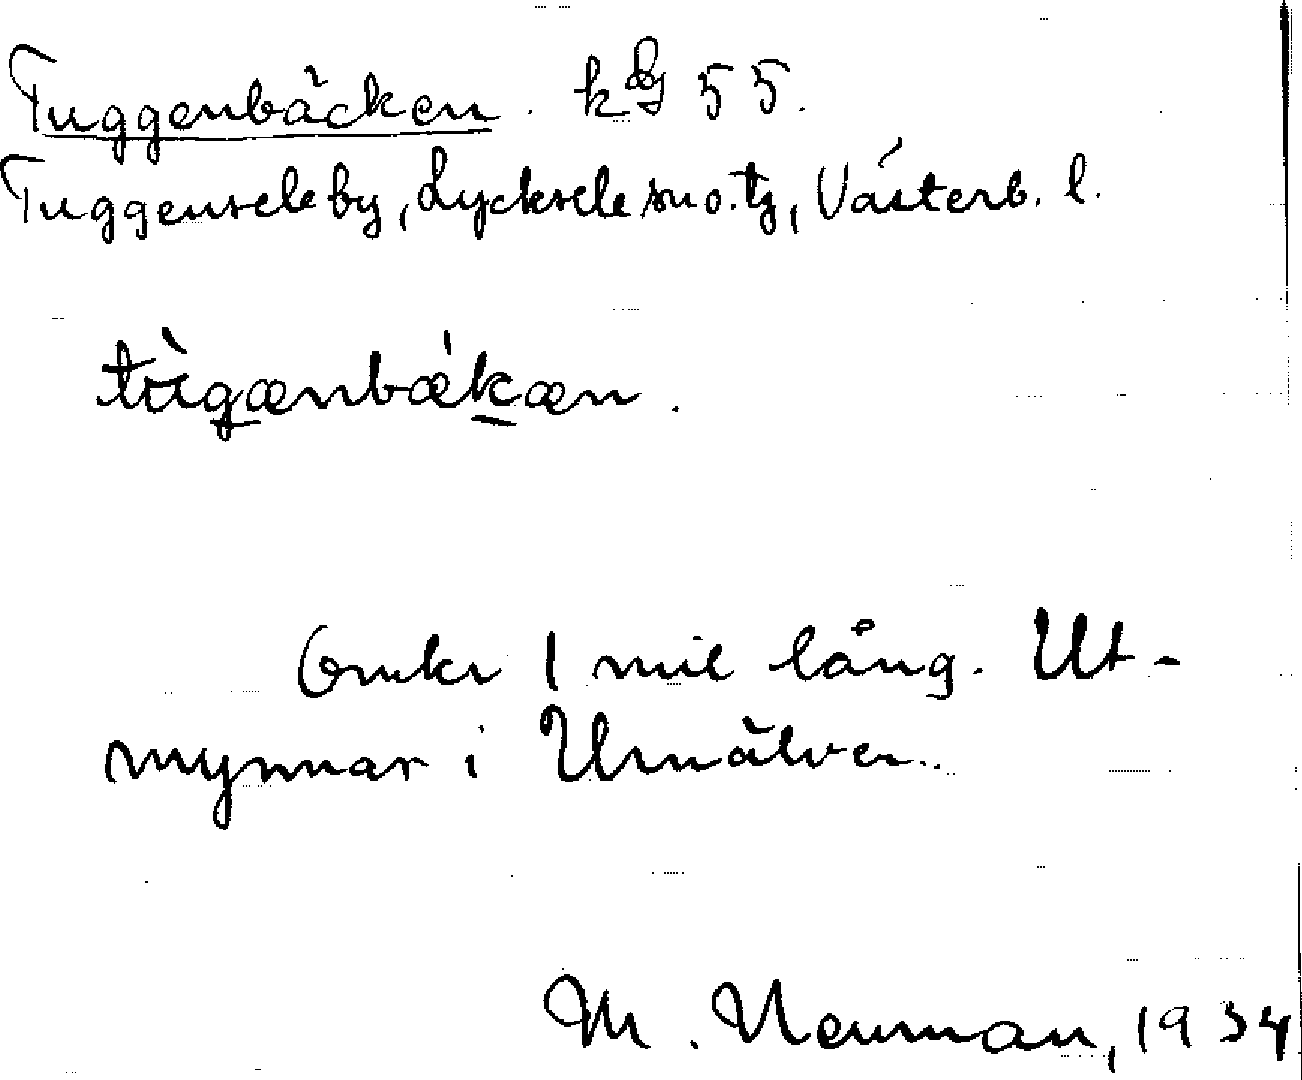 Tuggenbäcken. kBg 55.
Tuggensele by, Lycksele sn o. tg, Västerb. l.
tùgænbækæn.
Omkr 1 mil lång. Ut-
mynnar i Umälven.
M. Neuman, 1934